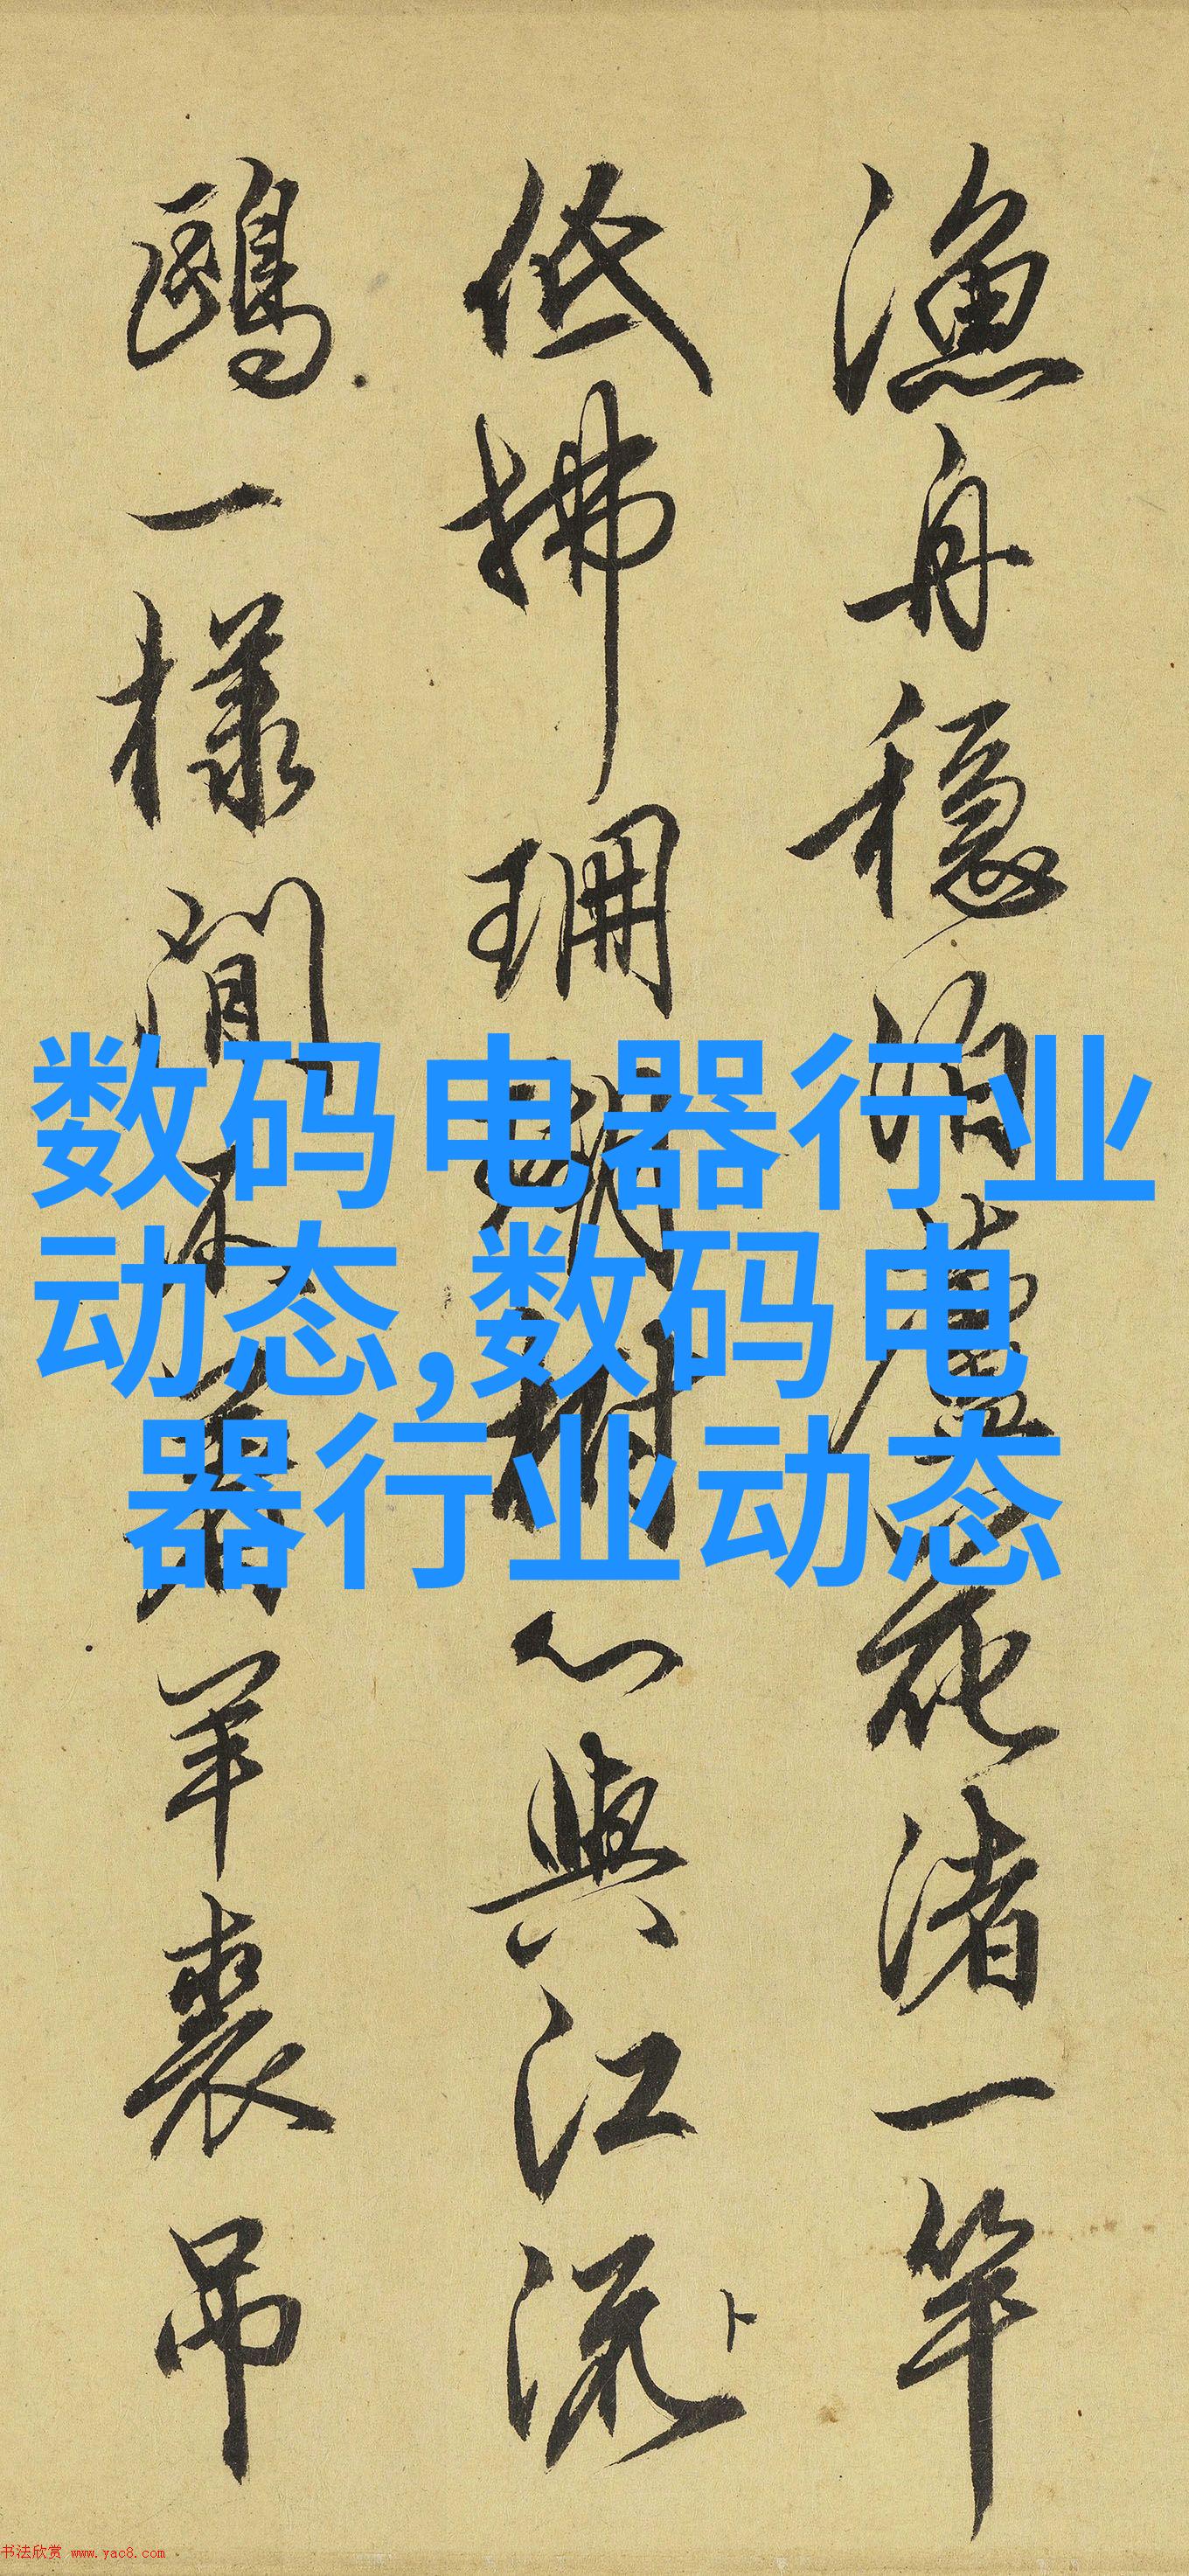 漁舟穩泊蘆花渚一竿
低拂珊瑚樹心與江流
鷗一樣閒不羊裘吊
数码电器行业
动态,数码电
器行业动态
书法欣赏 www.yac8.com